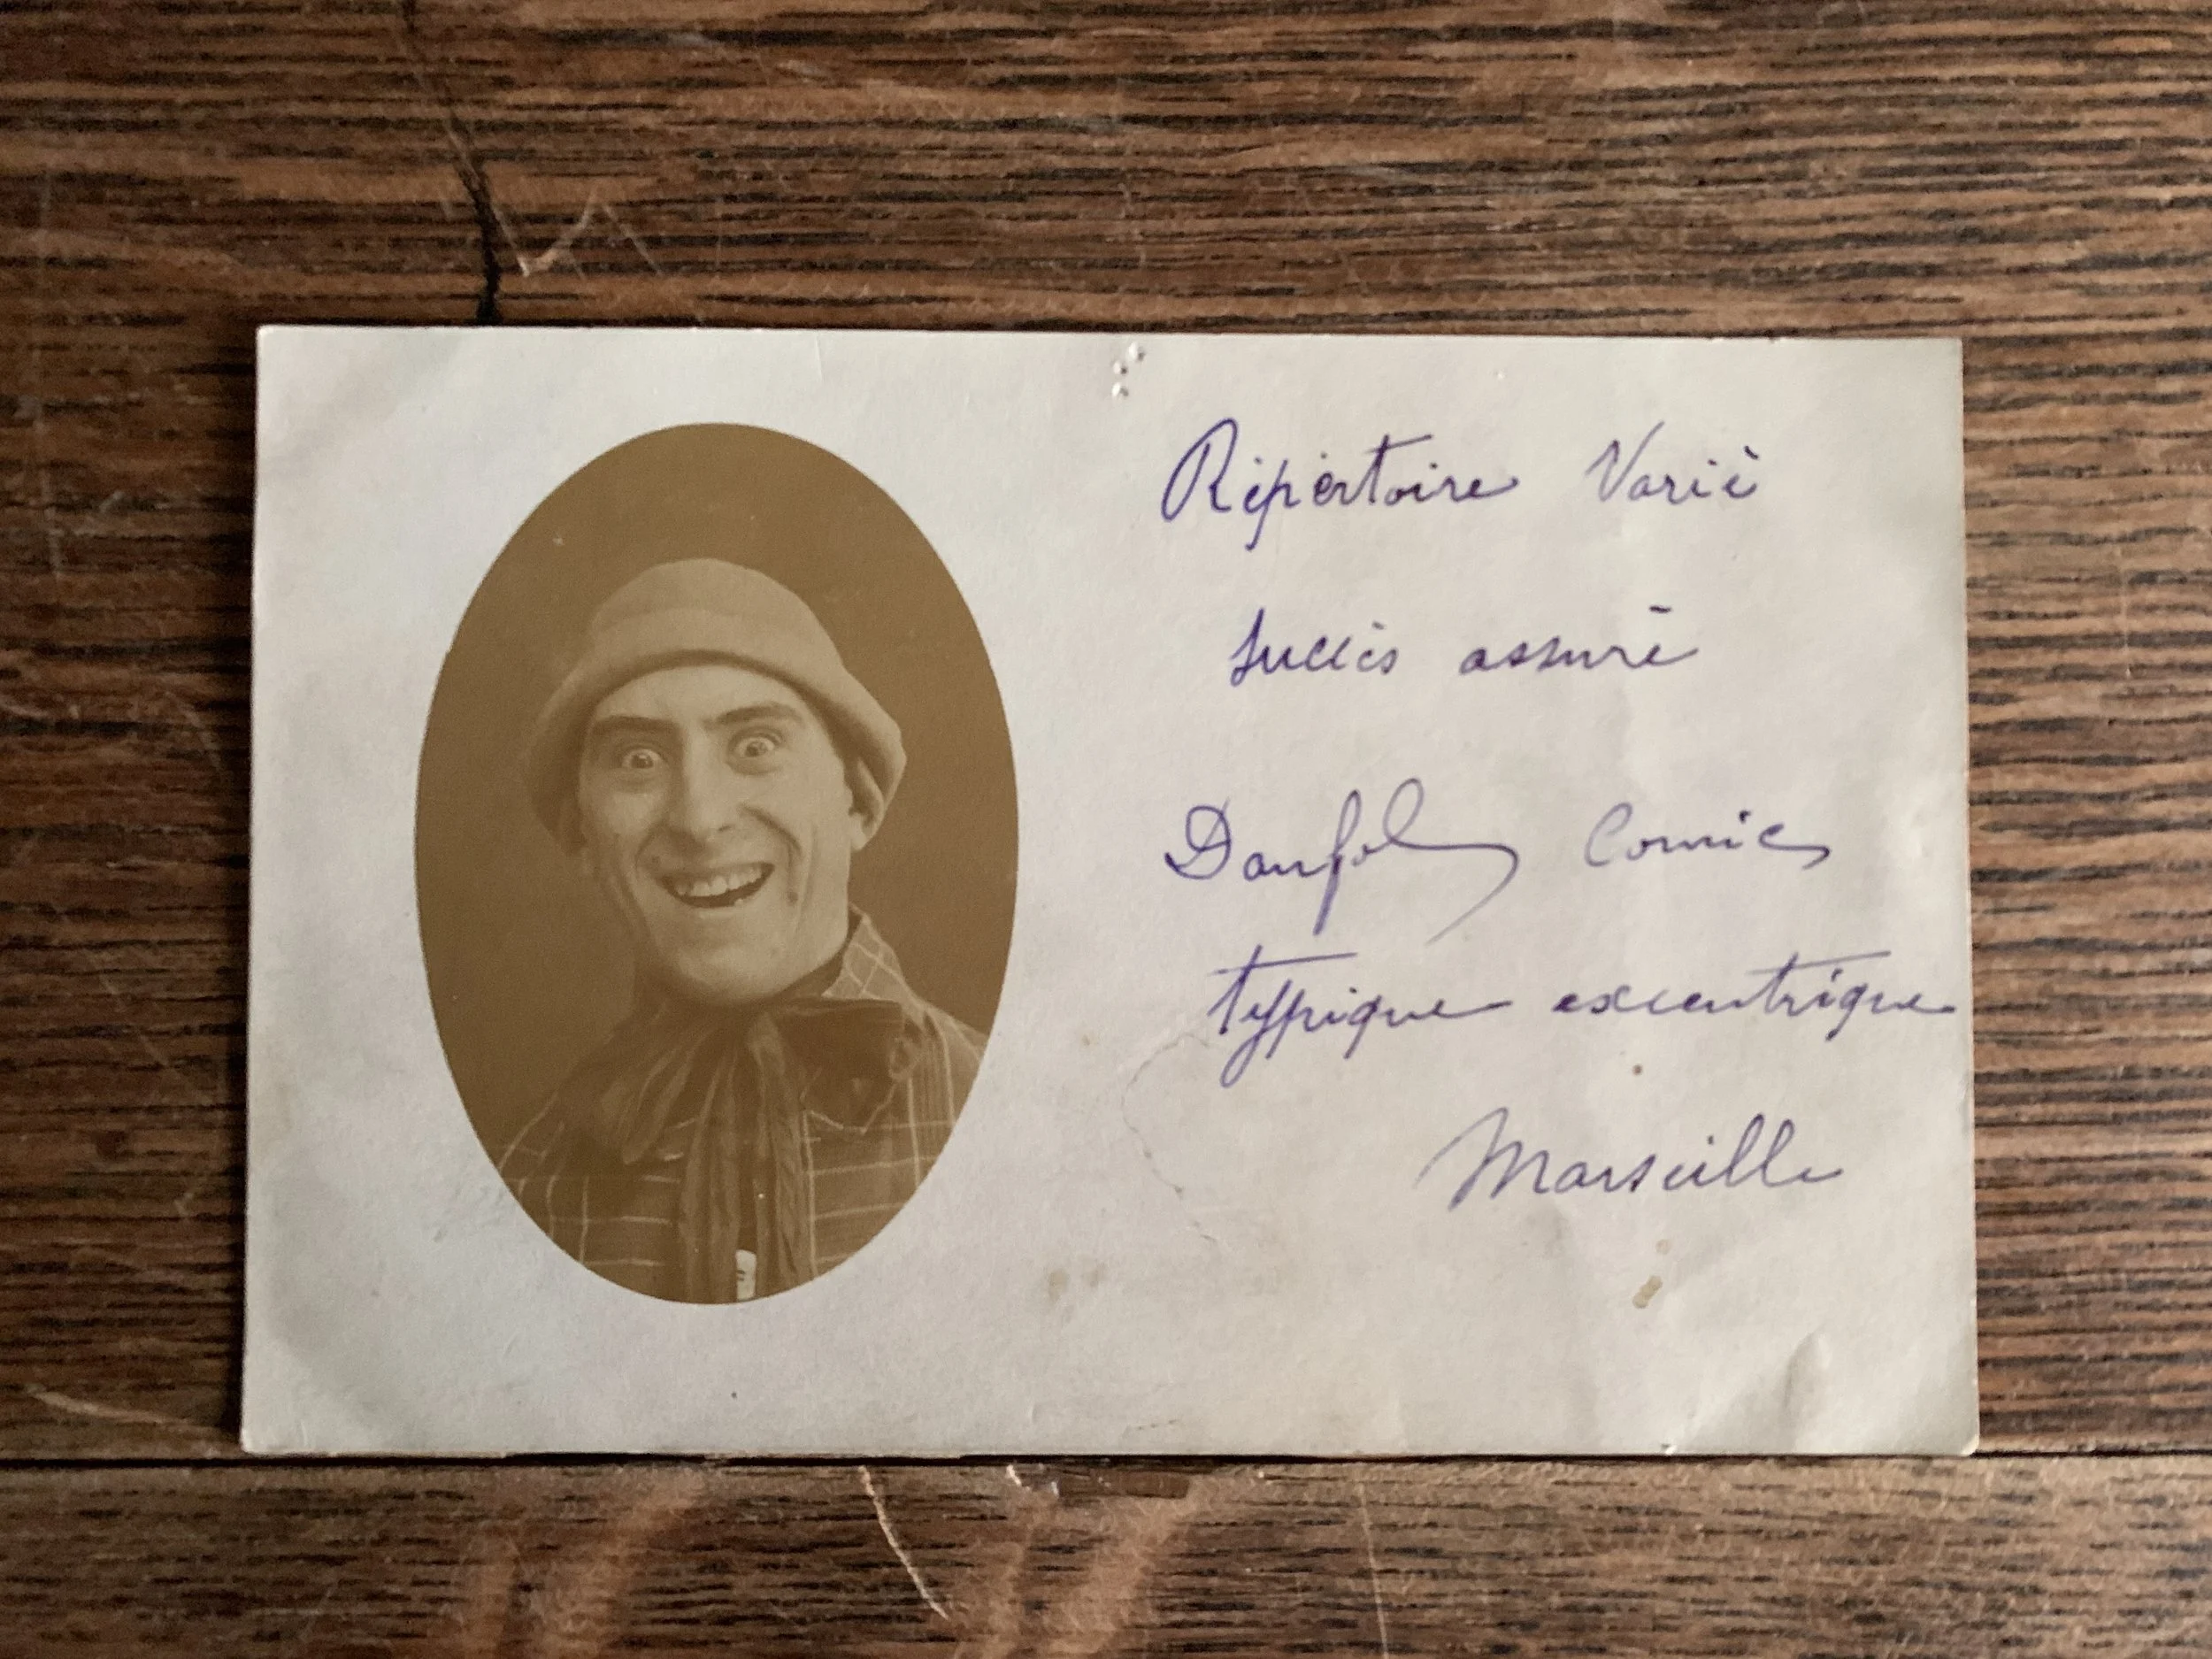 Répertoire Varié
Succès assuré
Danfol Comic
typique excentrique
Marseille